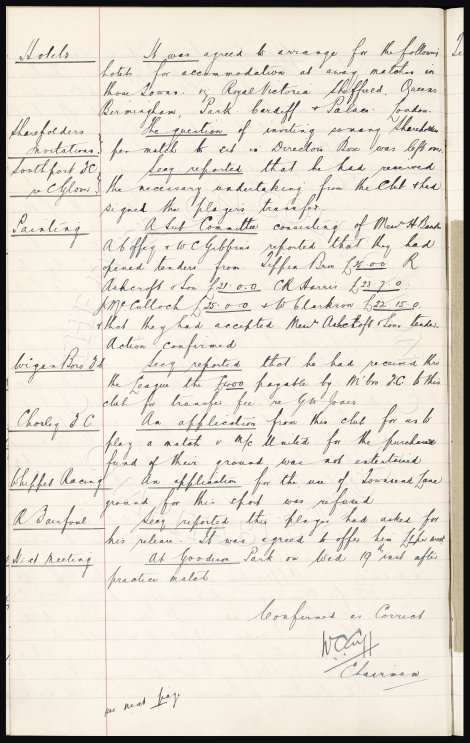 Hotels
It was agreed to arrange for the following
hotels for accommodation at away matches in
those towns. viz Royal Victoria Sheffield, Queens
Birmingham, Park Cardiff & Palace London.
Shareholders
Invitations
The question of inviting so many Shareholders
per match to sit in Directors Box was left over.
Southport F.C.
re C Glover
Secy reported that he had received
the necessary undertaking from the Club & had
signed the players transfer.
Painting
A Sub Committee consisting of Messrs H Banks
A Coffey & W C Gibbins reported that they had
opened tenders from Tiffin Bros R
Ashcroft & Son £21.0.0 C R Harris £23.7.0
J McCulloch £25.0.0 & W Clarkson £22.15.0.
& that they had accepted Messrs Ashcroft & Sons tender.
Action confirmed
Wigan Boro F.C.
Secy reported that he had received thro
the League the payable by Wn Boro F.C. to this
club for transfer fee re G W Jones
Chorley F.C
An application from this club for us to
play a match v M/c United for the purchase
fund of their ground was not entertained
Whippet Racing
An application for the use of Townsend Lane
ground for this sport was refused
Secy reported this player had asked for
his release. It was agreed to offer him per week
Nxt meeting
At Goodison Park on Wed 19th inst after
practice match
Confirmed as Correct
W.C. Cuff
Chairman
see next page